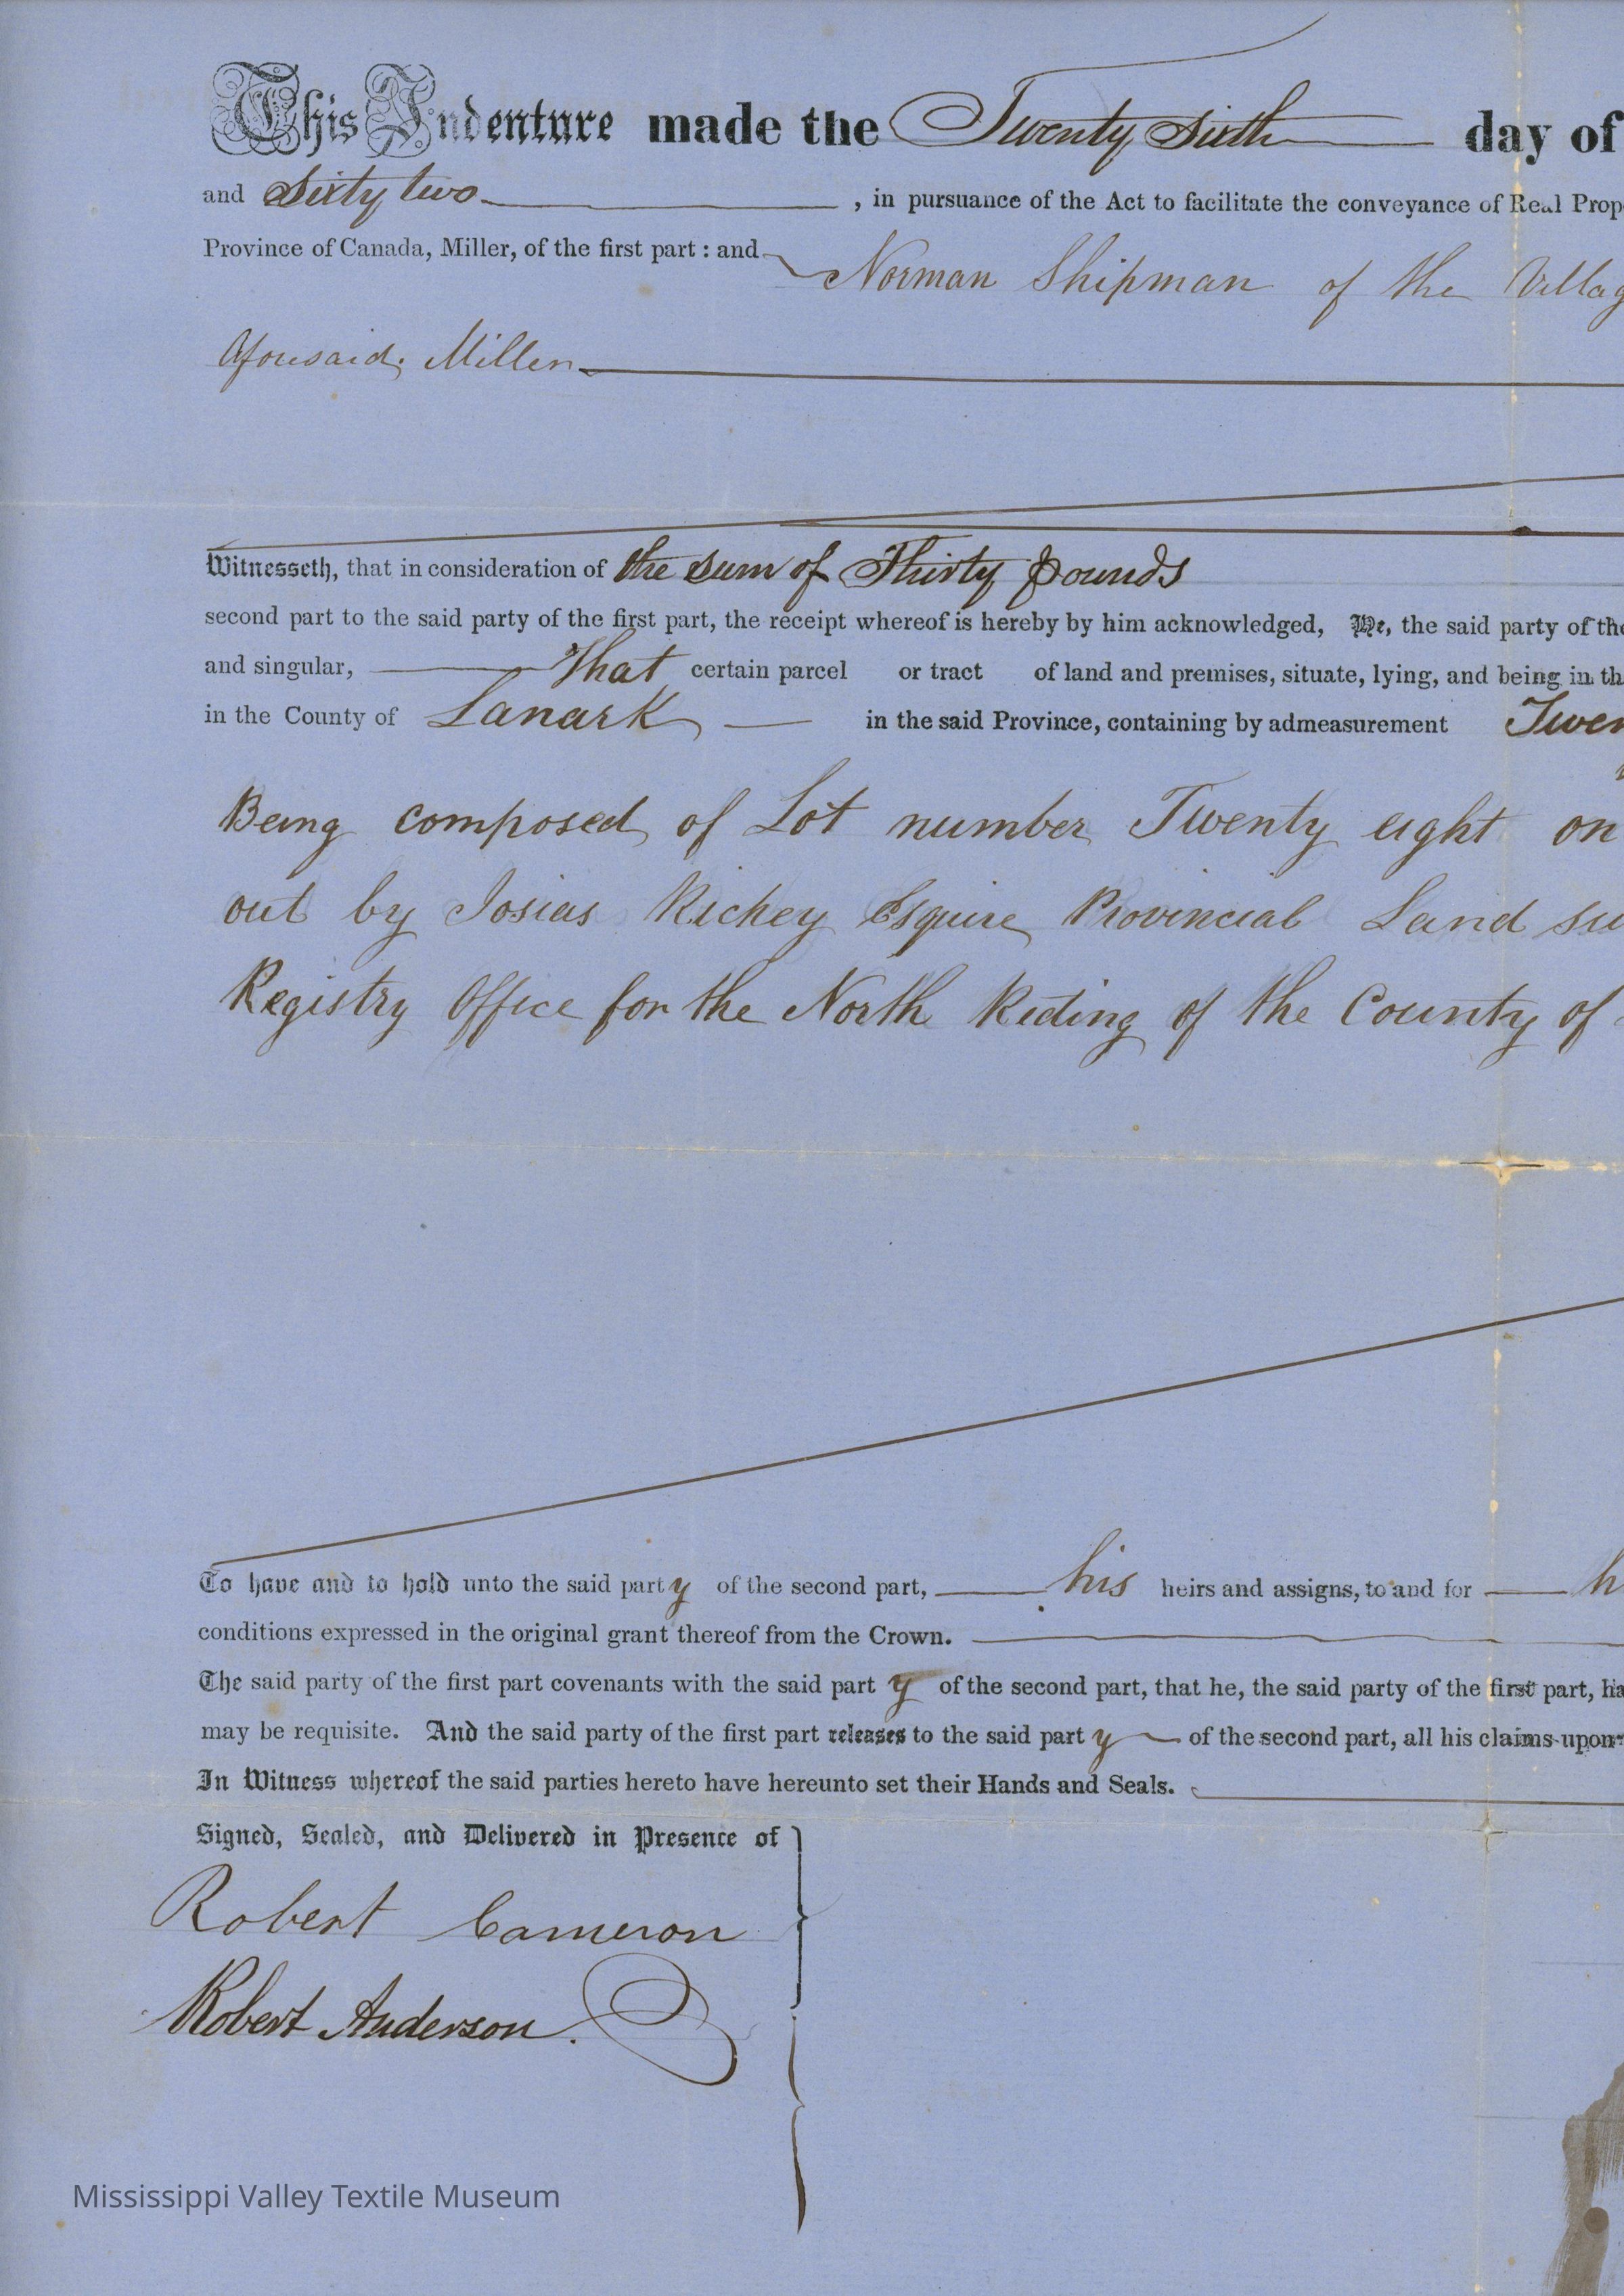 This Indenture made the Twenty sixth day of
and sixty two , in pursuance of the Act to facilitate the conveyance of Real Prop
Province of Canada, Miller, of the first part : and Norman Shipman of the Villag
Aforesaid, Miller
Witnesseth, that in consideration of the sum of Thirty pounds
second part to the said party of the first part, the receipt whereof is hereby by him acknowledged, He, the said party of the
and singular, That certain parcel or tract of land and premises, situate, lying, and being in th
in the County of Lanark in the said Province, containing by admeasurement Twen
Being composed of Lot number Twenty eight on
out by Josias Richey Esquire Provincial Land su
Registry Office for the North Riding of the County of
To have and to hold unto the said party of the second part, his heirs and assigns, to and for h
conditions expressed in the original grant thereof from the Crown.
The said party of the first part covenants with the said part y of the second part, that he, the said party of the first part, ha
may be requisite. And the said party of the first part releases to the said part y of the second part, all his claims upon
In Witness whereof the said parties hereto have hereunto set their Hands and Seals.
Signed, Sealed, and Delivered in Presence of
Robert Cameron
Robert Anderson.
Mississippi Valley Textile Museum